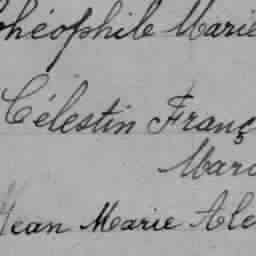 Théophile Marie
Célestin Franç
Marc
Jean Marie Ale